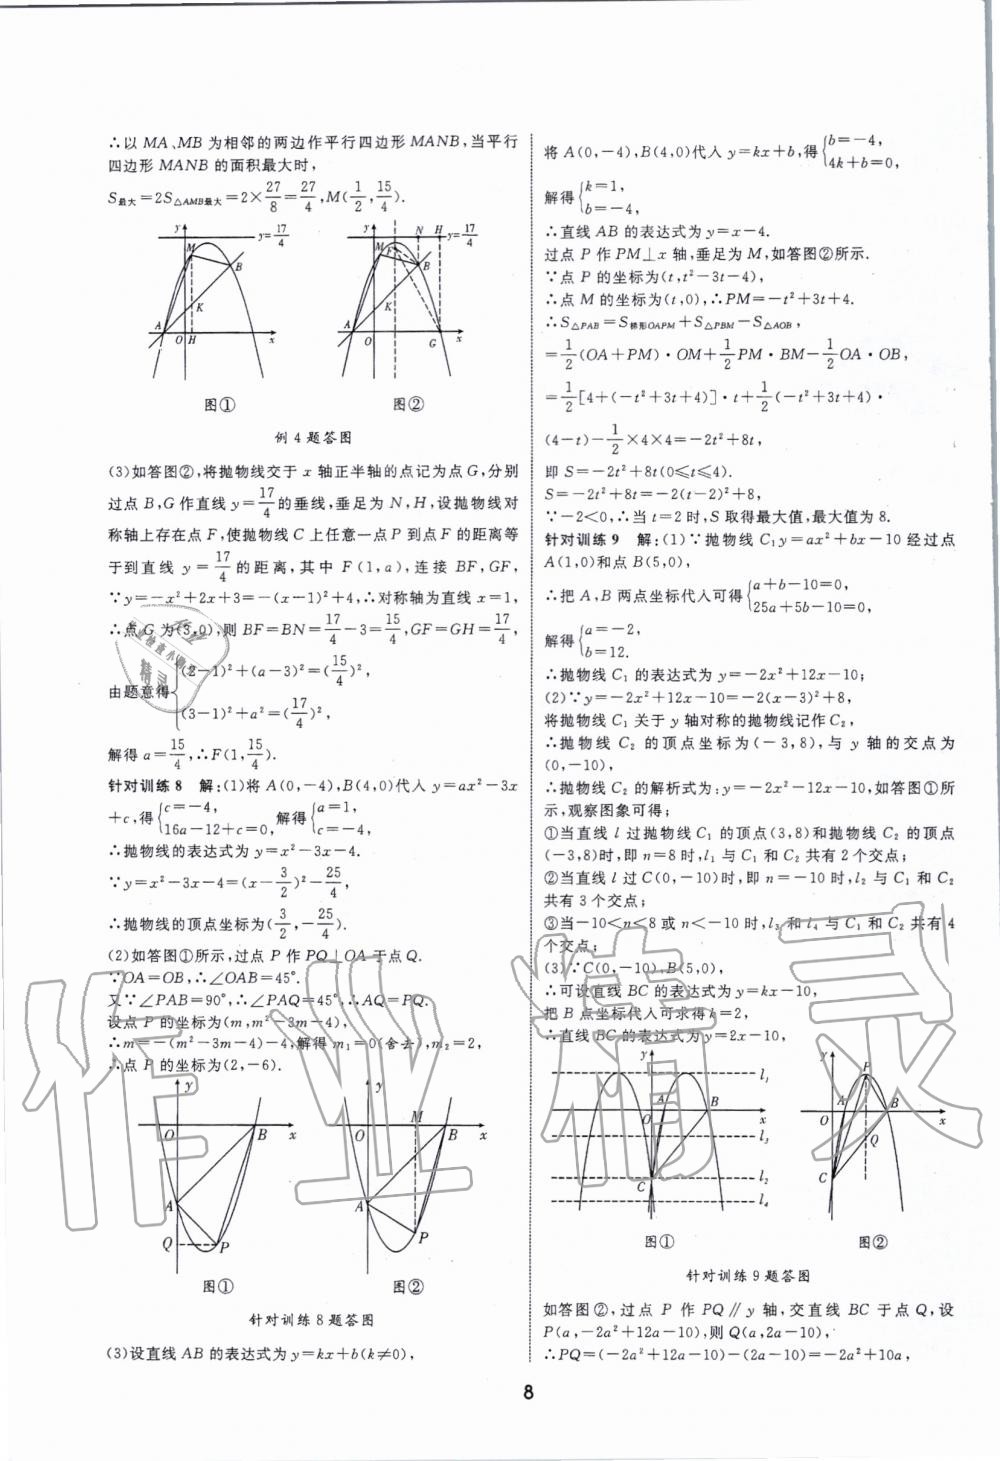 ∴以 MA、MB 为相邻的两边作平行四边形 MANB,当平行
四边形 MANB 的面积最大时,
S最大=2S△AMB最大=2×27/8=27/4,M(1/2,15/4).
y
y=17/4
M
B
K
A
O
H
x
图①
y
N
H
y=17/4
M
F
B
K
A
O
G
x
图②
例 4 题答图
(3)如答图②,将抛物线交于 x 轴正半轴的点记为点 G,分别
过点 B,G 作直线 y=17/4 的垂线,垂足为 N,H,设抛物线对
称轴上存在点 F,使抛物线 C 上任意一点 P 到点 F 的距离等
于到直线 y=17/4 的距离,其中 F(1,a),连接 BF,GF,
∵y=-x²+2x+3=-(x-1)²+4,∴对称轴为直线 x=1,
∴点 G 为(3,0),则 BF=BN=17/4-3=15/4,GF=GH=17/4,
由题意得{(2-1)²+(a-3)²=(15/4)²,
(3-1)²+a²=(17/4)²,
解得 a=15/4,∴F(1,15/4).
针对训练 8 解:(1)将 A(0,-4),B(4,0)代入 y=ax²-3x
+c,得{c=-4, 16a-12+c=0, 解得{a=1, c=-4,
∴抛物线的表达式为 y=x²-3x-4.
∵y=x²-3x-4=(x-3/2)²-25/4,
∴抛物线的顶点坐标为(3/2,-25/4).
(2)如答图①所示,过点 P 作 PQ⊥OA 于点 Q.
∵OA=OB,∴∠OAB=45°.
又∵∠PAB=90°,∴∠PAQ=45°,∴AQ=PQ.
设点 P 的坐标为(m,m²-3m-4),
∴m=-(m²-3m-4)-4,解得 m₁=0(舍去),m₂=2,
∴点 P 的坐标为(2,-6).
y
O
B
x
A
Q
P
图①
y
M
O
B
x
A
P
图②
针对训练 8 题答图
(3)设直线 AB 的表达式为 y=kx+b(k≠0),
将 A(0,-4),B(4,0)代入 y=kx+b,得{b=-4, 4k+b=0,
解得{k=1, b=-4,
∴直线 AB 的表达式为 y=x-4.
过点 P 作 PM⊥x 轴,垂足为 M,如答图②所示.
∵点 P 的坐标为(t,t²-3t-4),
∴点 M 的坐标为(t,0),∴PM=-t²+3t+4.
∴S△PAB=S梯形OAPM+S△PBM-S△AOB,
=1/2(OA+PM)·OM+1/2PM·BM-1/2OA·OB,
=1/2[4+(-t²+3t+4)]·t+1/2(-t²+3t+4)·
(4-t)-1/2×4×4=-2t²+8t,
即 S=-2t²+8t(0≤t≤4).
S=-2t²+8t=-2(t-2)²+8,
∵-2<0,∴当 t=2 时,S 取得最大值,最大值为 8.
针对训练 9 解:(1)∵抛物线 C₁y=ax²+bx-10 经过点
A(1,0)和点 B(5,0),
∴把 A,B 两点坐标代入可得{a+b-10=0, 25a+5b-10=0,
解得{a=-2, b=12.
∴抛物线 C₁ 的表达式为 y=-2x²+12x-10;
(2)∵y=-2x²+12x-10=-2(x-3)²+8,
将抛物线 C₁ 关于 y 轴对称的抛物线记作 C₂,
∴抛物线 C₂ 的顶点坐标为(-3,8),与 y 轴的交点为
(0,-10),
∴抛物线 C₂ 的解析式为:y=-2x²-12x-10,如答图①所
示,观察图象可得:
①当直线 l 过抛物线 C₁ 的顶点(3,8)和抛物线 C₂ 的顶点
(-3,8)时,即 n=8 时,l₁ 与 C₁ 和 C₂ 共有 2 个交点;
②当直线 l 过 C(0,-10)时,即 n=-10 时,l₂ 与 C₁ 和 C₂
共有 3 个交点;
③当-10<n<8 或 n<-10 时,l₃ 和 l₄ 与 C₁ 和 C₂ 共有 4
个交点;
(3)∵C(0,-10),B(5,0),
∴可设直线 BC 的表达式为 y=kx-10,
把 B 点坐标代入可求得 k=2,
∴直线 BC 的表达式为 y=2x-10,
y
l₁
A
B
O
x
l₃
l₂
C
l₄
图①
y
P
A
B
O
x
Q
C
图②
针对训练 9 题答图
如答图②,过点 P 作 PQ∥y 轴,交直线 BC 于点 Q,设
P(a,-2a²+12a-10),则 Q(a,2a-10),
∴PQ=(-2a²+12a-10)-(2a-10)=-2a²+10a,
8
作业精灵